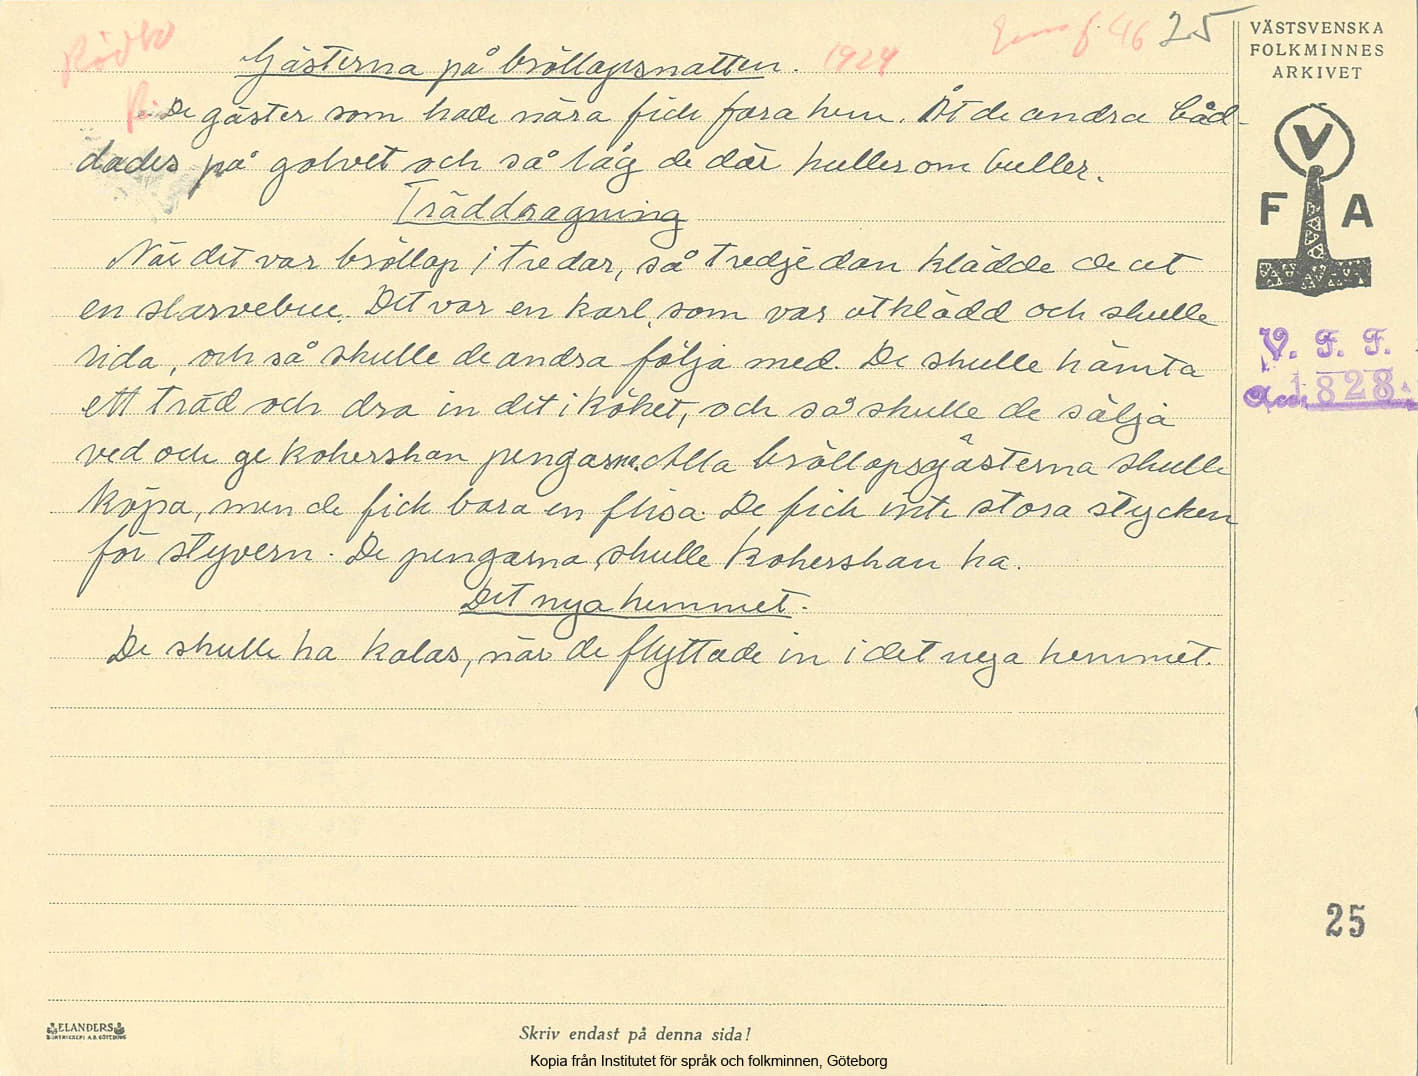 Rödbo
Gästerna på bröllopsnatten. 1924
46 25
De gäster som hade nära fick fara hem. Åt de andra båd-
dades på golvet och så låg de där huller om buller.
Träddragning
När det var bröllop i tre dar, så tredje dan klädde de ut
en slarvebuc. Det var en karl, som var utklädd och skulle
rida, och så skulle de andra följa med. De skulle hämta
ett träd och dra in det i köket, och så skulle de sälja
ved och ge kokerskan pengarna. Alla bröllopsgästerna skulle
köpa, men de fick bara en flisa. De fick inte stora stycken
för styvern. De pengarna skulle kokerskan ha.
Det nya hemmet.
De skulle ha kalas, när de flyttade in i det nya hemmet.
VÄSTSVENSKA
FOLKMINNES
ARKIVET
V
F A
V. F. F.
Acc. 1828
25
ELANDERS
BOKTRYCKERI A.B. GÖTEBORG
Skriv endast på denna sida!
Kopia från Institutet för språk och folkminnen, Göteborg